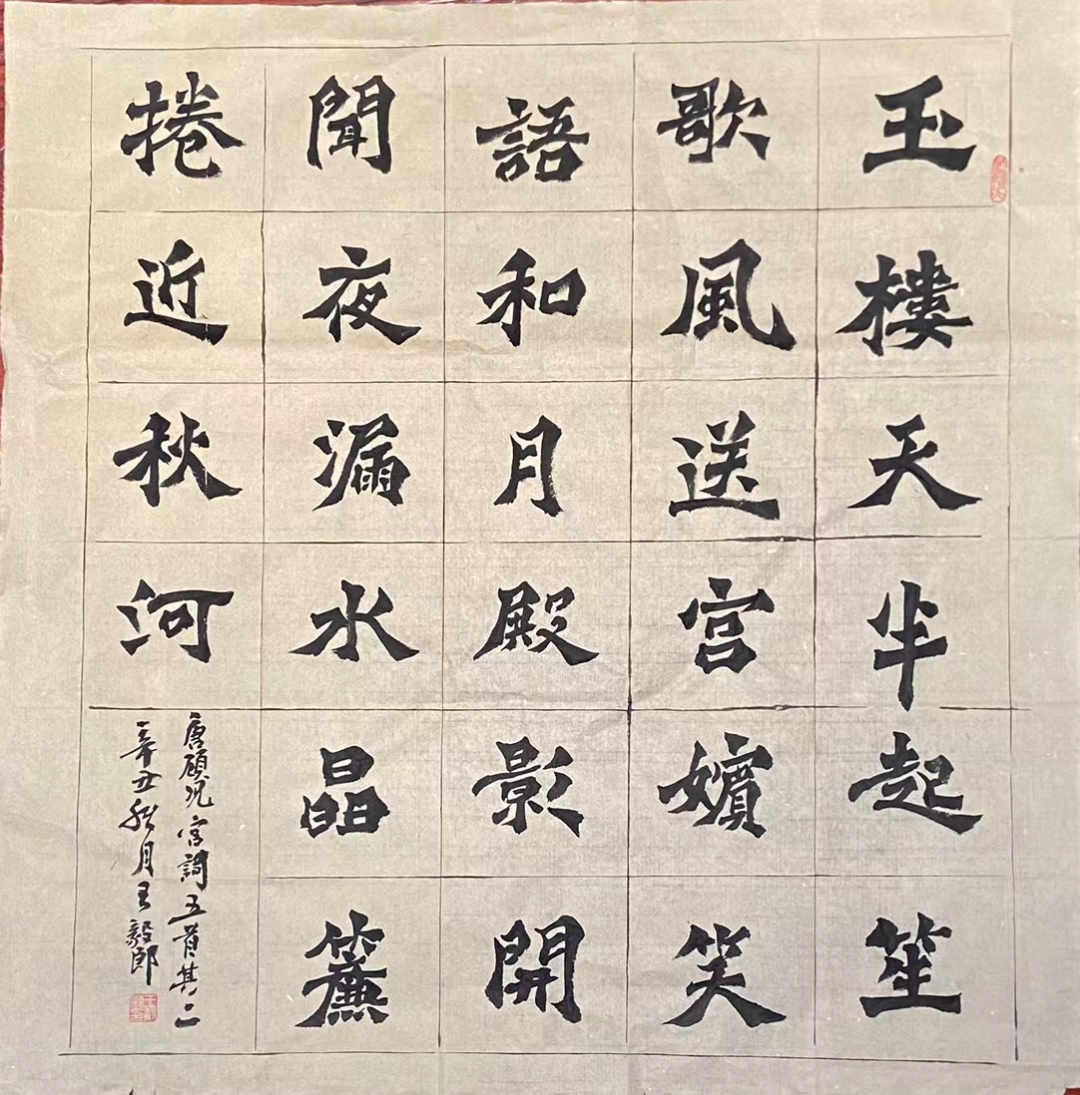 玉樓天半起笙
歌風送宮嬪笑
語和月殿影開
聞夜漏水晶簾
捲近秋河
唐顧况宮詞五首其二
辛丑秋月王毅郎